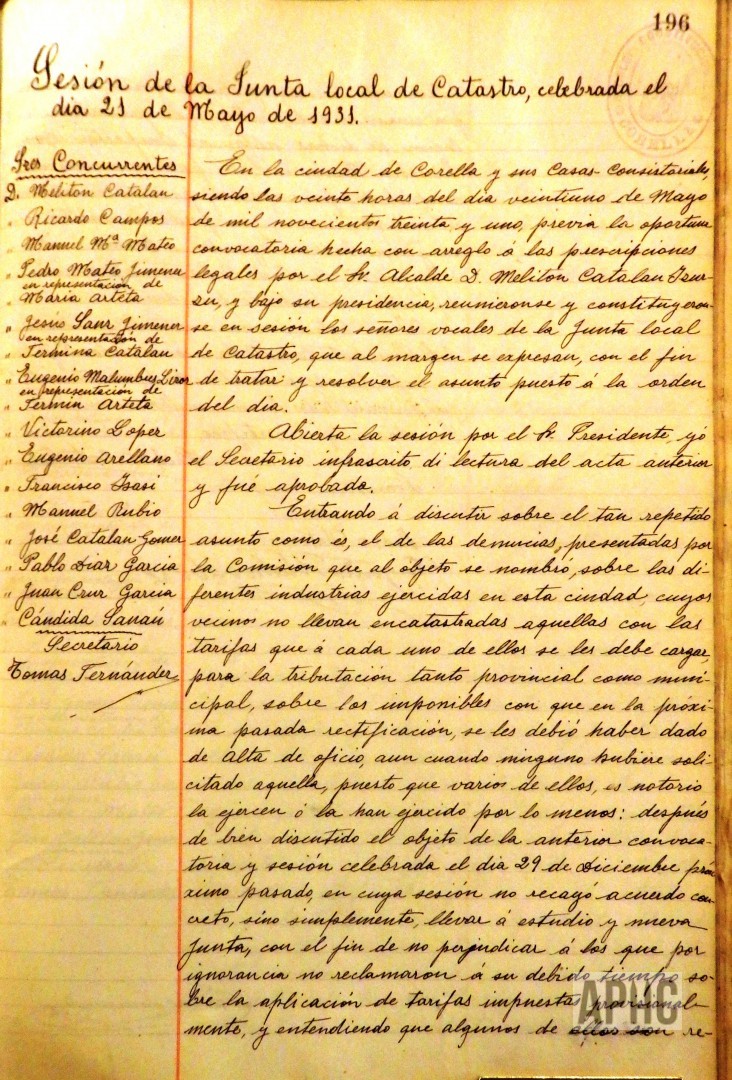 196
Sesión de la Junta local de Catastro, celebrada el
dia 21 de Mayo de 1931.
Sres Concurrentes
D. Meliton Catalan
" Ricardo Campos
" Manuel Mª Mateo
" Pedro Mateo Jimenez
en representación de
Maria Arteta
" Jesús Sanz Jimenez
en representación de
Fermina Catalan
" Eugenio Malumbres
en representación de
Fermin Arteta
" Victorino Lopez
" Eugenio Arellano
" Francisco Isasi
" Manuel Rubio
" José Catalan Gomez
" Pablo Diaz Garcia
" Juan Cruz Garcia
" Cándida Sanaú
Secretario
Tomas Fernández
En la ciudad de Corella y sus Casas-Consistoriales,
siendo las veinte horas del dia veintiuno de Mayo
de mil novecientos treinta y uno, previa la oportuna
convocatoria hecha con arreglo á las prescripciones
legales por el Sr. Alcalde D. Meliton Catalan Izur-
zu, y bajo su presidencia, reunieronse y constituyeron-
se en sesión los señores vocales de la Junta local
de Catastro, que al margen se expresan, con el fin
de tratar y resolver el asunto puesto á la orden
del dia.
Abierta la sesión por el Sr. Presidente, yó
el Secretario infrascrito di lectura del acta anterior
y fué aprobada.
Entrando á discutir sobre el tan repetido
asunto como és, el de las denuncias, presentadas por
la Comisión que al objeto se nombro, sobre las di-
ferentes industrias ejercidas en esta ciudad, cuyos
vecinos no llevan encatastradas aquellas con las
tarifas que á cada uno de ellos se les debe cargar,
para la tributación tanto provincial como muni-
cipal, sobre los imponibles con que en la próxi-
ma pasada rectificación, se les debió haber dado
de Alta de oficio, aun cuando ninguno hubiere soli-
citado aquella, puesto que varios de ellos, es notorio
la ejercen ó la han ejercido por lo menos: después
de bien discutido el objeto de la anterior convoca-
toria y sesión celebrada el dia 29 de Diciembre pró-
ximo pasado, en cuya sesión no recayó acuerdo con-
creto, sino simplemente, llevar á estudio y nueva
Junta, con el fin de no perjudicar á los que por
ignorancia no reclamaron á su debido tiempo so-
bre la aplicación de tarifas impuestas provisional-
mente, y entendiendo que algunos de ellos son re-
APHC